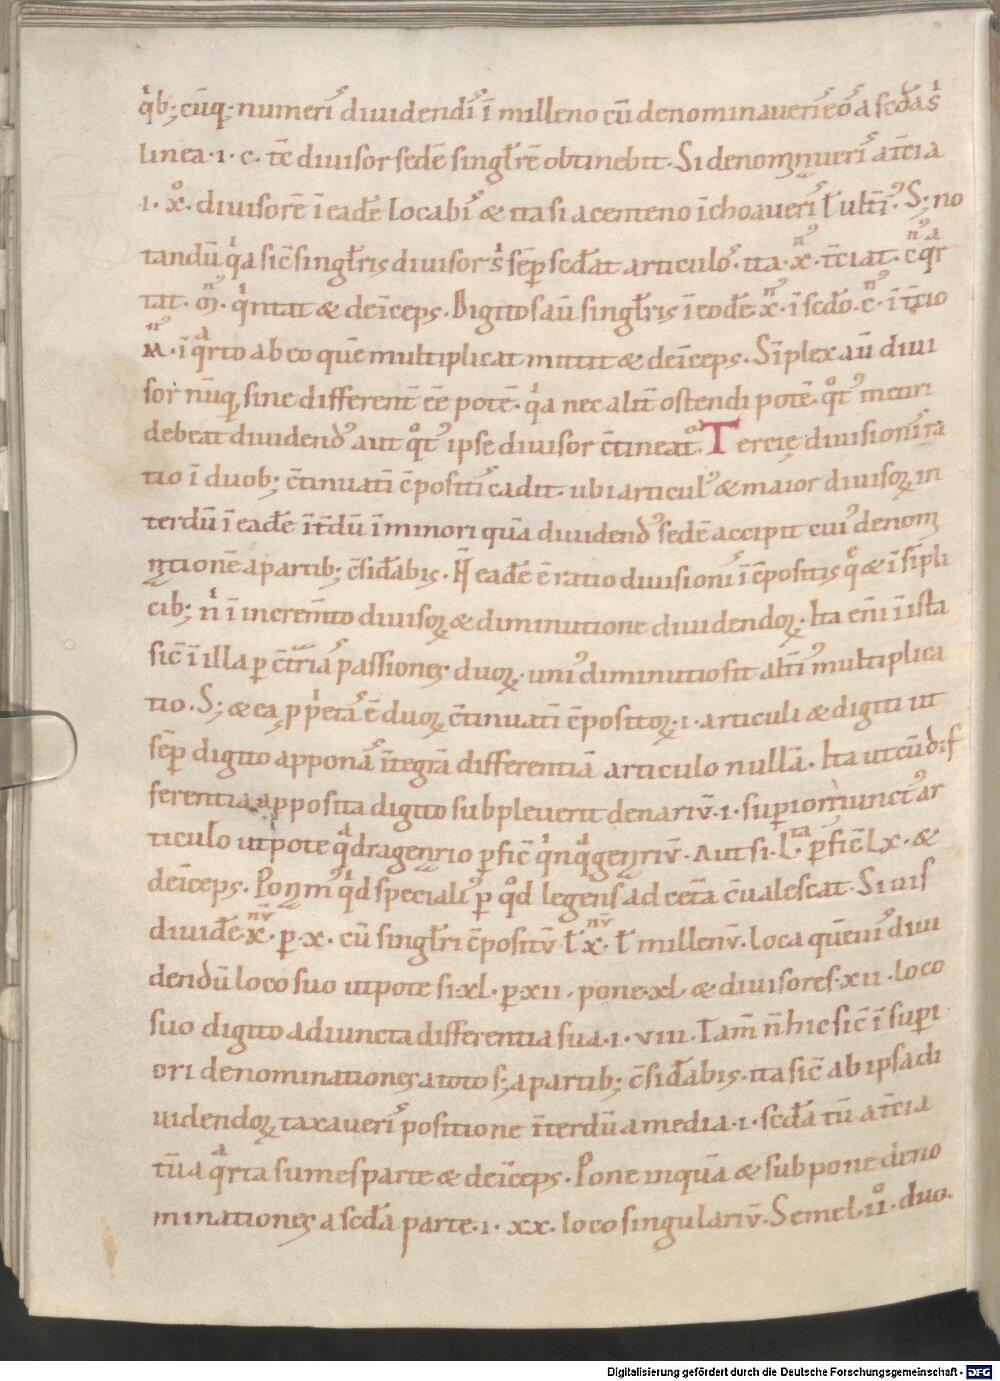 qͥb; cūq; numeriˀ diuidendiˀ ī milleno cū denominaueriˀ eoˀ a scđa sͥ
linea · i · c · tc̄ diuisor sedē singłrē obtinebit · Si denomīnueriˀ a īcia
i · xͦ · diuisorē ī eadē locabiˀ & ita si a centeno īchoaueriˀ ł ultīˀ · S; no
tandū qͥa sic̄ singłris diuisor sͥ sēp scđat articuloˀ · ita · x · t̄ciat · c̄ qͣr
tat · ꝏ · qͥntat & deīceps · Digitos aū singłris ī eodē · x̄ · ī scđo · c̄ · ī t̄tio
M · ī qͣrto ab eo quē multiplicat mittit & deīceps · Sīplex aū diui
sor nūq, sine differenˉt ēē potē · qͥa nec altˉi ostendi potē · qͦtˀ metiri
debeat diuidendˀ aut qͦtˀ ipse diuisor c̄tineatˀ · Tercię diuisioniˀ ra
tio ī duob; c̄tinuatī c̄positiˀ cadit · ubi articulˀ & maior diuisoꝝ in
terdū ī eadē īt̄dū ī minori quā diuidendˀ sedē accipit cuiˀ denom
nationē a partib; c̄siđabis · H̄ eadē ē ratio diuisioniˀ ī c̄positis qͦ & ī sīpli
cib; nͥ ī incremˉto diuisoꝝ & diminutione diuidendoꝝ · Ita enī ī ista
sic̄ ī illa p c̄triaˀ passiones · duoꝝ · uniˀ diminutio fit altˉiˀ multiplica
tio · S; & ea ꝓpͥetaˀ ē duoꝝ c̄tinuatī c̄positoꝝ · i · articuli & digiti ut
sēp digito apponaˀ īntegrā differentiā articulo nullā · Ita ut cū dif
ferentia apposita digito subpleuerit denariū · i · supiori iunctˀ ar
ticulo utpote qͣdragenario pficˉ qͥnqͣgenariū · Aut si · Lᵗᵃ · pficˉ Lx · &
deīceps · Ponamˀ qͥd specialiˀ p qͦd legens ad cetā c̄ualescat · Si uis
diuidē · x̄ · p · x · cū singłri c̄positū ł x̄ · ł millenū · loca quēuiˀ diui
dendū loco suo utpote si · xl · p · xii · pone · xl · & diuisores · xii · loco
suo digito adiuncta differentia sua · i · viii · Tam̄ n̄ hic sic̄ ī supi
ori denominationes a toto s; a partib; c̄siđabis · ita sic̄ ab ipsa di
uidendoꝝ taxaueriˀ positione īterdū a media · i · scđa tū a īcia
tū a qͣrta sumes parte & deīceps · Pone inquā & subpone deno
minationes a scđa parte · i · xx · loco singulariū · Semel · iiͦ · duo ·
Digitalisierung gefördert durch die Deutsche Forschungsgemeinschaft · DFG